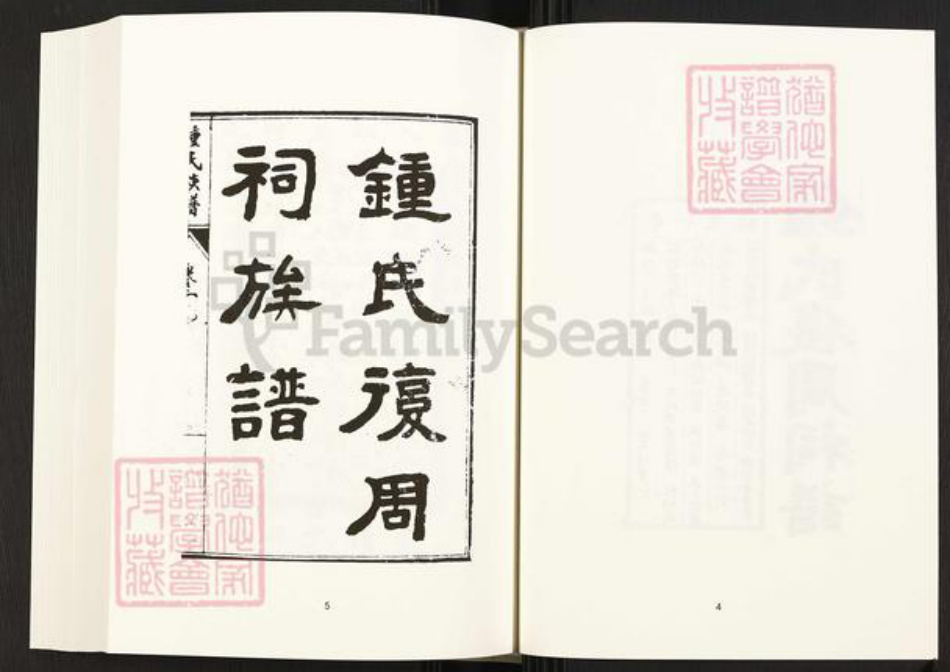 鍾氏復周
祠族譜
鍾氏族譜
卷一
5
4
FamilySearch
譜學會
收藏
譜學會
收藏